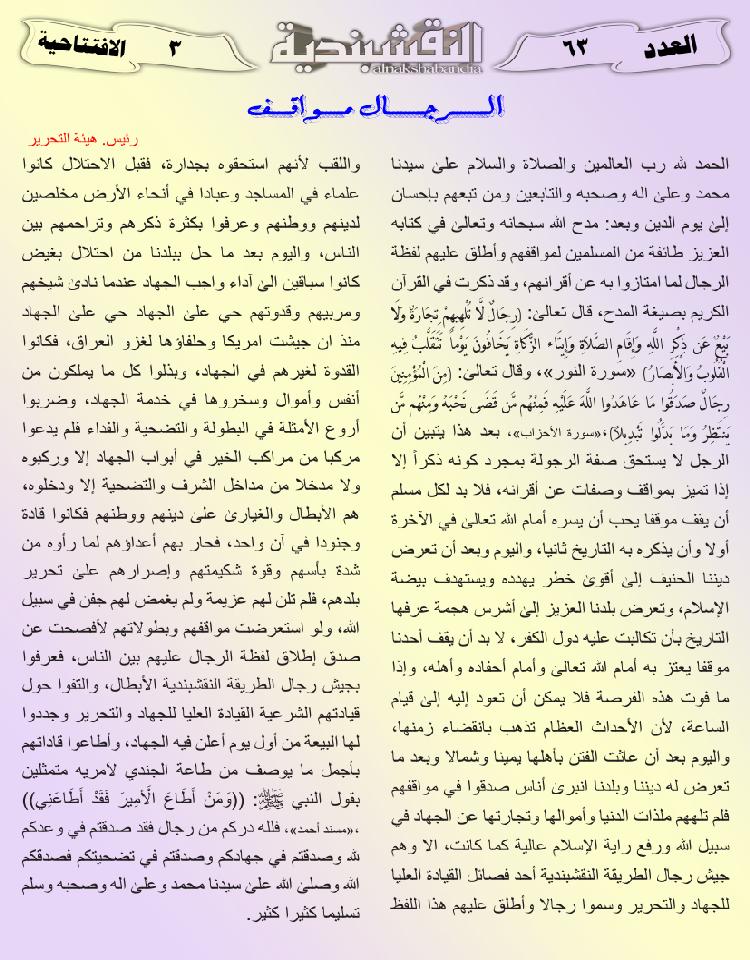 العدد
٦٣
النقشبندية
alnakshabandia
٣
الافتتاحية
الـــرجـــال مـــواقـــف
رئيس. هيئة التحرير
الحمد لله رب العالمين والصلاة والسلام على سيدنا
محمد وعلى اله وصحبه والتابعين ومن تبعهم بإحسان
إلى يوم الدين وبعد: مدح الله سبحانه وتعالى في كتابه
العزيز طائفة من المسلمين لمواقفهم وأطلق عليهم لفظة
الرجال لما امتازوا به عن أقرانهم، وقد ذكرت في القرآن
الكريم بصيغة المدح، قال تعالى: (رِجَالٌ لَّا تُلْهِيهِمْ تِجَارَةٌ وَلَا
بَيْعٌ عَن ذِكْرِ اللَّهِ وَإِقَامِ الصَّلَاةِ وَإِيتَاءِ الزَّكَاةِ يَخَافُونَ يَوْماً تَتَقَلَّبُ فِيهِ
الْقُلُوبُ وَالْأَبْصَارُ) «سورة النور»، وقال تعالى: (مِنَ الْمُؤْمِنِينَ
رِجَالٌ صَدَقُوا مَا عَاهَدُوا اللَّهَ عَلَيْهِ فَمِنْهُم مَّن قَضَى نَحْبَهُ وَمِنْهُم مَّن
يَنتَظِرُ وَمَا بَدَّلُوا تَبْدِيلاً)،«سورة الأحزاب»، بعد هذا يتبين أن
الرجل لا يستحق صفة الرجولة بمجرد كونه ذكراً إلا
إذا تميز بمواقف وصفات عن أقرانه، فلا بد لكل مسلم
أن يقف موقفا يحب أن يسره أمام الله تعالى في الآخرة
أولا وأن يذكره به التاريخ ثانيا، واليوم وبعد أن تعرض
ديننا الحنيف إلى أقوى خطر يهدده ويستهدف بيضة
الإسلام، وتعرض بلدنا العزيز إلى أشرس هجمة عرفها
التاريخ بأن تكالبت عليه دول الكفر، لا بد أن يقف أحدنا
موقفا يعتز به أمام الله تعالى وأمام أحفاده وأهله، وإذا
ما فوت هذه الفرصة فلا يمكن أن تعود إليه إلى قيام
الساعة، لأن الأحداث العظام تذهب بانقضاء زمنها،
واليوم بعد أن عاثت الفتن بأهلها يمينا وشمالا وبعد ما
تعرض له ديننا وبلدنا انبرى أناس صدقوا في مواقفهم
فلم تلههم ملذات الدنيا وأموالها وتجارتها عن الجهاد في
سبيل الله ورفع راية الإسلام عالية كما كانت، الا وهم
جيش رجال الطريقة النقشبندية أحد فصائل القيادة العليا
للجهاد والتحرير وسموا رجالا وأطلق عليهم هذا اللفظ
واللقب لأنهم استحقوه بجدارة، فقبل الاحتلال كانوا
علماء في المساجد وعبادا في أنحاء الأرض مخلصين
لدينهم ووطنهم وعرفوا بكثرة ذكرهم وتراحمهم بين
الناس، واليوم بعد ما حل ببلدنا من احتلال بغيض
كانوا سباقين الى آداء واجب الجهاد عندما نادى شيخهم
ومربيهم وقدوتهم حي على الجهاد حي على الجهاد
منذ ان جيشت امريكا وحلفاؤها لغزو العراق، فكانوا
القدوة لغيرهم في الجهاد، وبذلوا كل ما يملكون من
أنفس وأموال وسخروها في خدمة الجهاد، وضربوا
أروع الأمثلة في البطولة والتضحية والفداء فلم يدعوا
مركبا من مراكب الخير في أبواب الجهاد إلا وركبوه
ولا مدخلا من مداخل الشرف والتضحية إلا ودخلوه،
هم الأبطال والغيارى على دينهم ووطنهم فكانوا قادة
وجنودا في آن واحد، فحار بهم أعداؤهم لما رأوه من
شدة بأسهم وقوة شكيمتهم وإصرارهم على تحرير
بلدهم، فلم تلن لهم عزيمة ولم يغمض لهم جفن في سبيل
الله، ولو استعرضت مواقفهم وبطولاتهم لأفصحت عن
صدق إطلاق لفظة الرجال عليهم بين الناس، فعرفوا
بجيش رجال الطريقة النقشبندية الأبطال، والتفوا حول
قيادتهم الشرعية القيادة العليا للجهاد والتحرير وجددوا
لها البيعة من أول يوم أعلن فيه الجهاد، وأطاعوا قاداتهم
بأجمل ما يوصف من طاعة الجندي لامريه متمثلين
بقول النبي ﷺ: ((وَمَنْ أَطَاعَ الْأَمِيرَ فَقَدْ أَطَاعَنِي))
،«مسند أحمد»، فلله دركم من رجال فقد صدقتم في وعدكم
لله وصدقتم في جهادكم وصدقتم في تضحيتكم فصدقكم
الله وصلى الله على سيدنا محمد وعلى اله وصحبه وسلم
تسليما كثيرا كثير.